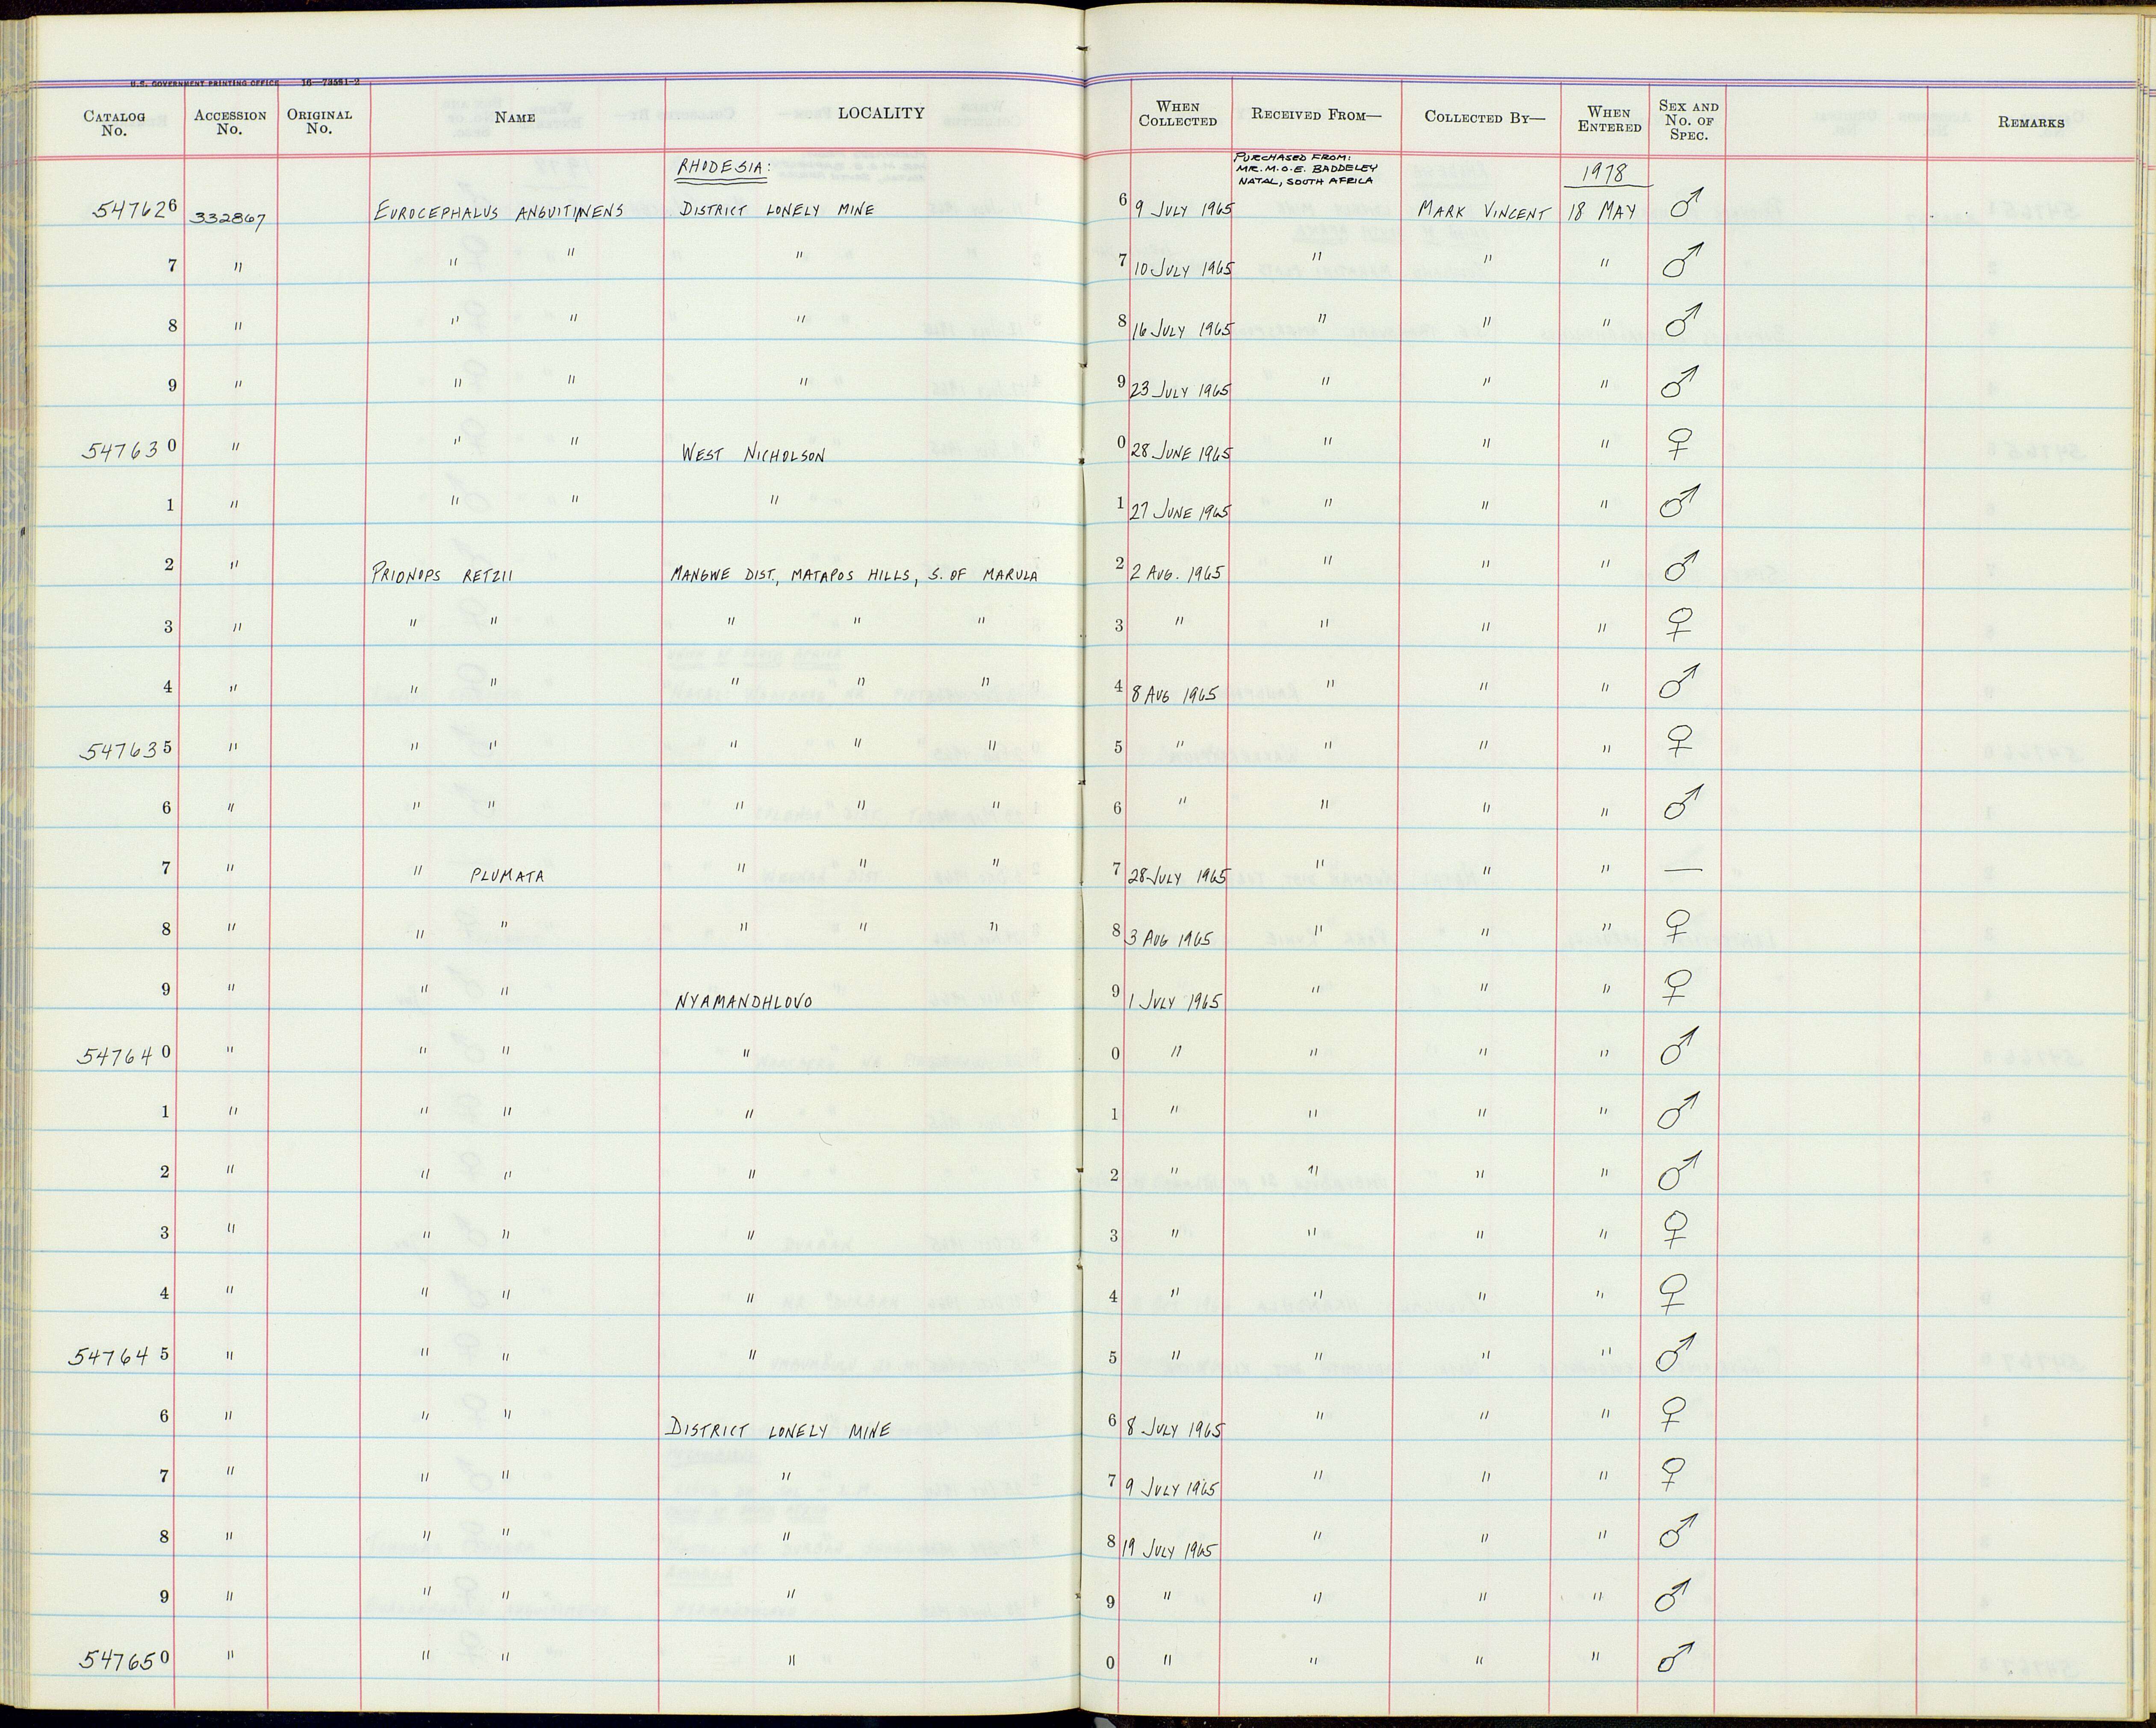 U.S. GOVERNMENT PRINTING OFFICE 16—73551-2
CATALOG No. ACCESSION No. ORIGINAL No. NAME LOCALITY WHEN COLLECTED RECEIVED FROM— COLLECTED BY— WHEN ENTERED SEX AND No. OF SPEC. REMARKS
RHODESIA: PURCHASED FROM: MR. M.O.E. BADDELEY NATAL, SOUTH AFRICA 1978
547626 332867 EUROCEPHALUS ANGUITIMENS DISTRICT LONELY MINE 6 9 JULY 1965 MARK VINCENT 18 MAY ♂
7 " " " " 7 10 JULY 1965 " " " ♂
8 " " " " 8 16 JULY 1965 " " " ♂
9 " " " " 9 23 JULY 1965 " " " ♂
547630 " " " WEST NICHOLSON 0 28 JUNE 1965 " " " ♀
1 " " " " 1 27 JUNE 1965 " " " ♂
2 " PRIONOPS RETZII MANGWE DIST., MATAPOS HILLS, S. OF MARULA 2 2 AUG. 1965 " " " ♂
3 " " " " " " 3 " " " " ♀
4 " " " " " " 4 8 AUG 1965 " " " ♂
547635 " " " " " " 5 " " " " ♀
6 " " " " " " 6 " " " " ♂
7 " " PLUMATA " " " 7 28 JULY 1965 " " " —
8 " " " " " " 8 3 AUG 1965 " " " ♀
9 " " " NYAMANDHLOVO 9 1 JULY 1965 " " " ♀
547640 " " " " 0 " " " " ♂
1 " " " " 1 " " " " ♂
2 " " " " 2 " " " " ♂
3 " " " " 3 " " " " ♀
4 " " " " 4 " " " " ♀
547645 " " " " 5 " " " " ♂
6 " " " DISTRICT LONELY MINE 6 8 JULY 1965 " " " ♀
7 " " " " 7 9 JULY 1965 " " " ♀
8 " " " " 8 19 JULY 1965 " " " ♂
9 " " " " 9 " " " " ♂
547650 " " " " 0 " " " " ♂